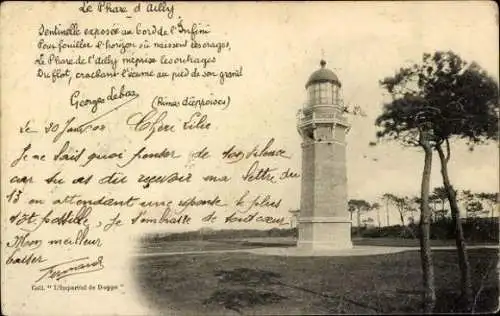 Le Phare d'Ailly
Sentinelle exposée au bord de l'Infini
Pour fouiller l'horizon où naissent les orages,
Le Phare de l'Ailly méprise les outrages
Du flot, crachant l'écume au pied de son granit
Georges Lebas (Rimas dieppoises)
Le 30 Janv Chère Lilie
Je ne sais quoi penser de ton silence
car tu as du recevoir ma lettre du
13 en attendant une reponse le plus
tôt possible, je t'embrasse de tout cœur
Mon meilleur
baiser
Fernand
Coll. "L'Impartial de Dieppe"